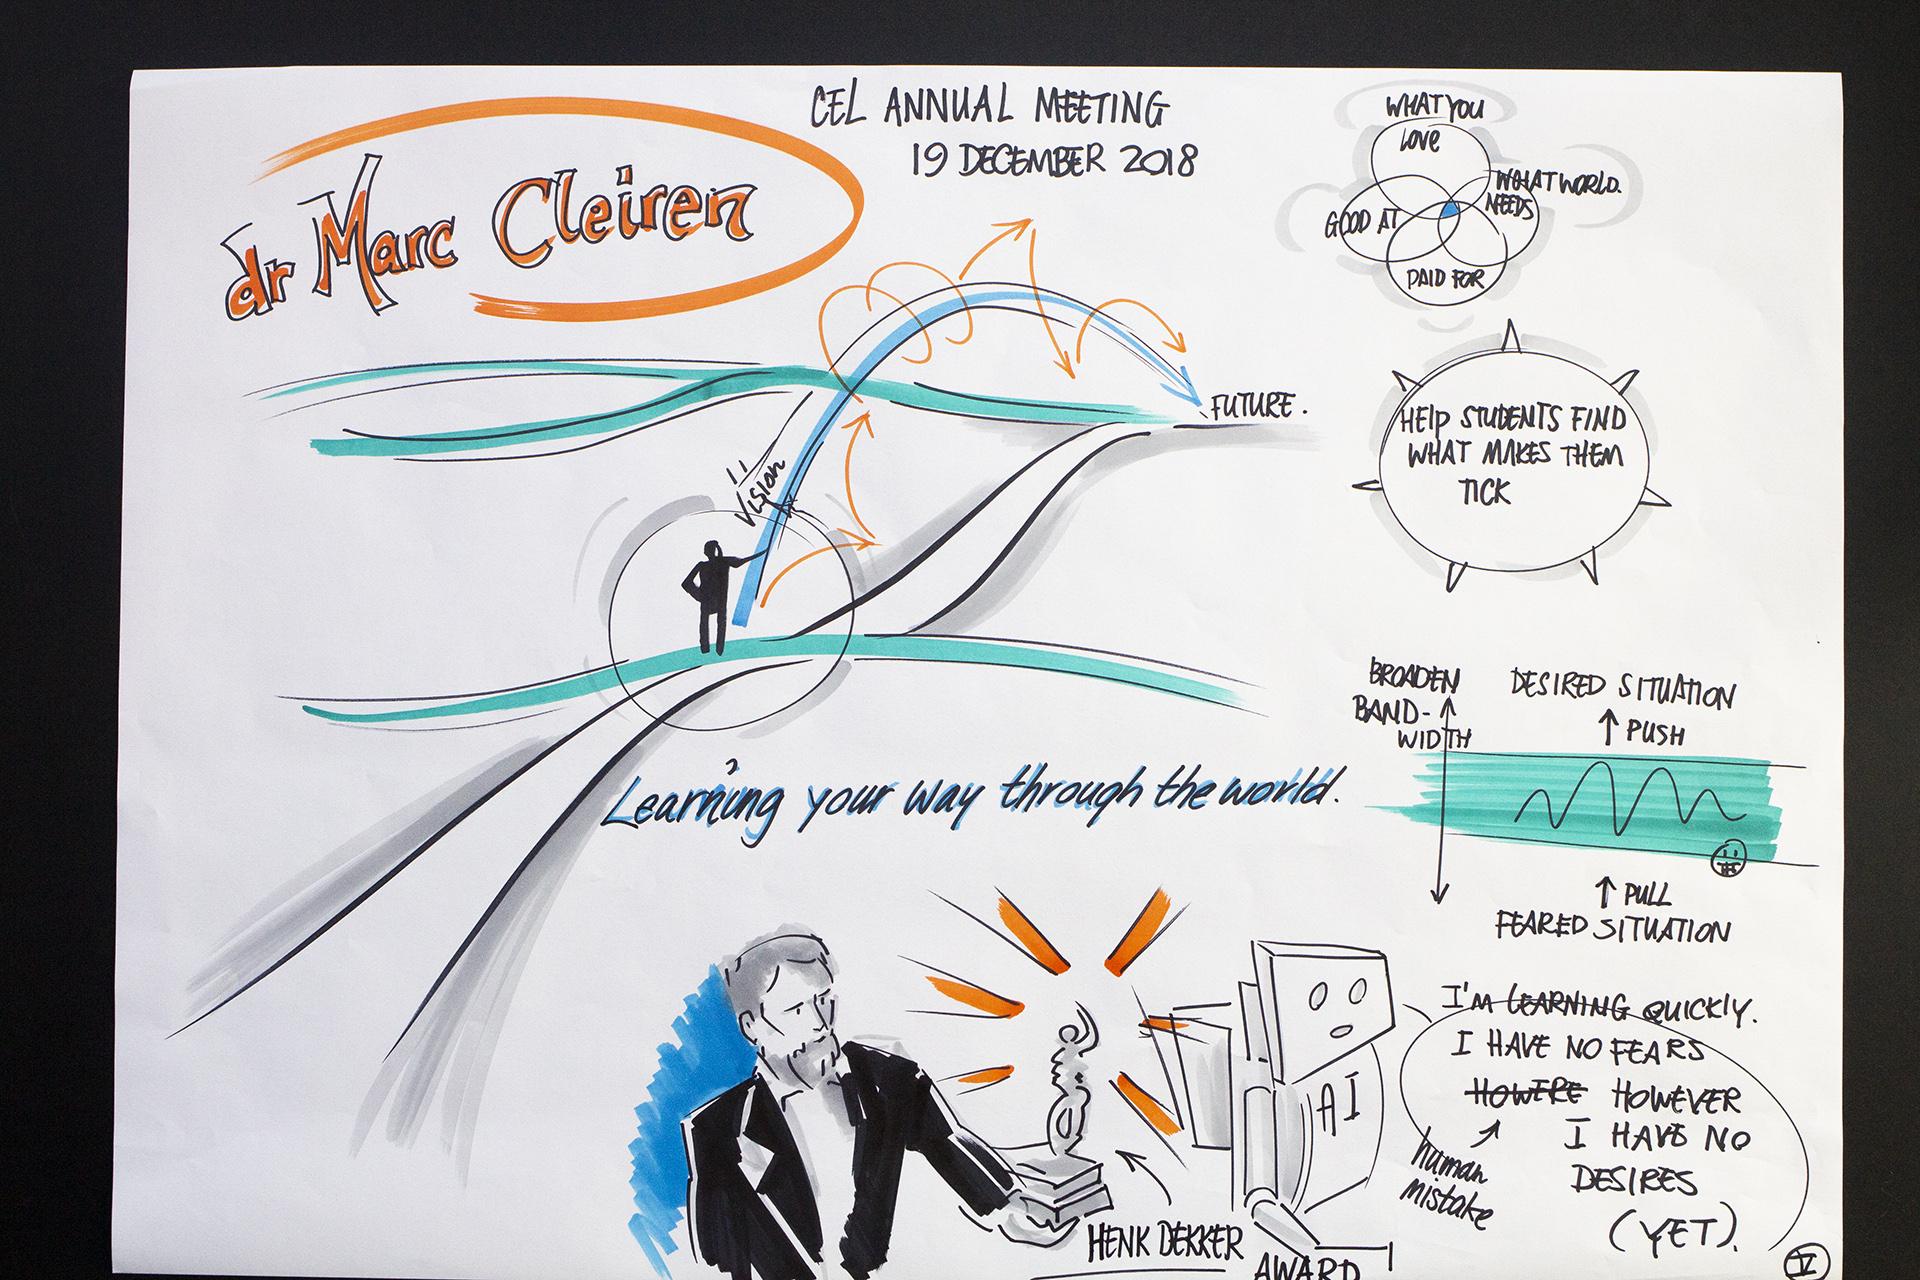 CEL ANNUAL MEETING
19 DECEMBER 2018
dr Marc Cleiren
WHAT YOU
LOVE
WHAT WORLD.
NEEDS
GOOD AT
PAID FOR
FUTURE.
Vision
HELP STUDENTS FIND
WHAT MAKES THEM
TICK
BROADEN
BAND-
WIDTH
DESIRED SITUATION
↑ PUSH
↑ PULL
FEARED SITUATION
Learning your way through the world.
I'M LEARNING QUICKLY.
I HAVE NO FEARS
HOWERE HOWEVER
I HAVE NO
DESIRES
(YET).
human
mistake
AI
HENK DEKKER
AWARD
IV